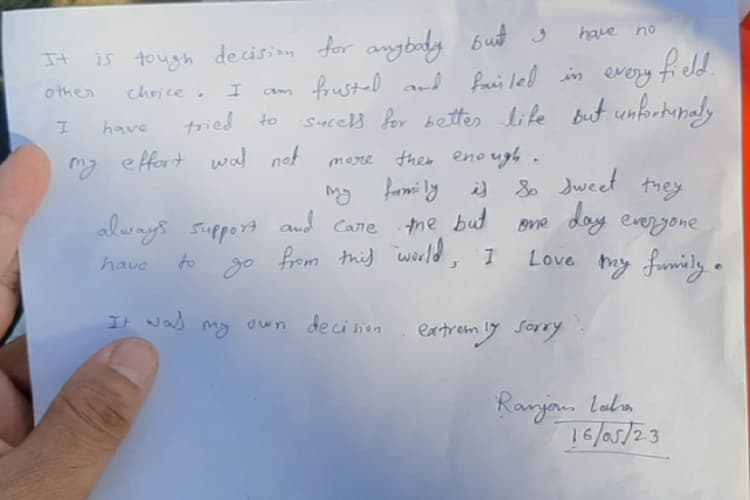 It is tough decision for angbody but I have no
other choice. I am frusted and failed in every field.
I have tried to sucess for better life but unfortunaly
my effort was not more then enough.
My family is so sweet they
always support and care me but one day everyone
have to go from this world, I Love my family.
It was my own decision. extremly sorry
Ranjan Laha
16/05/23